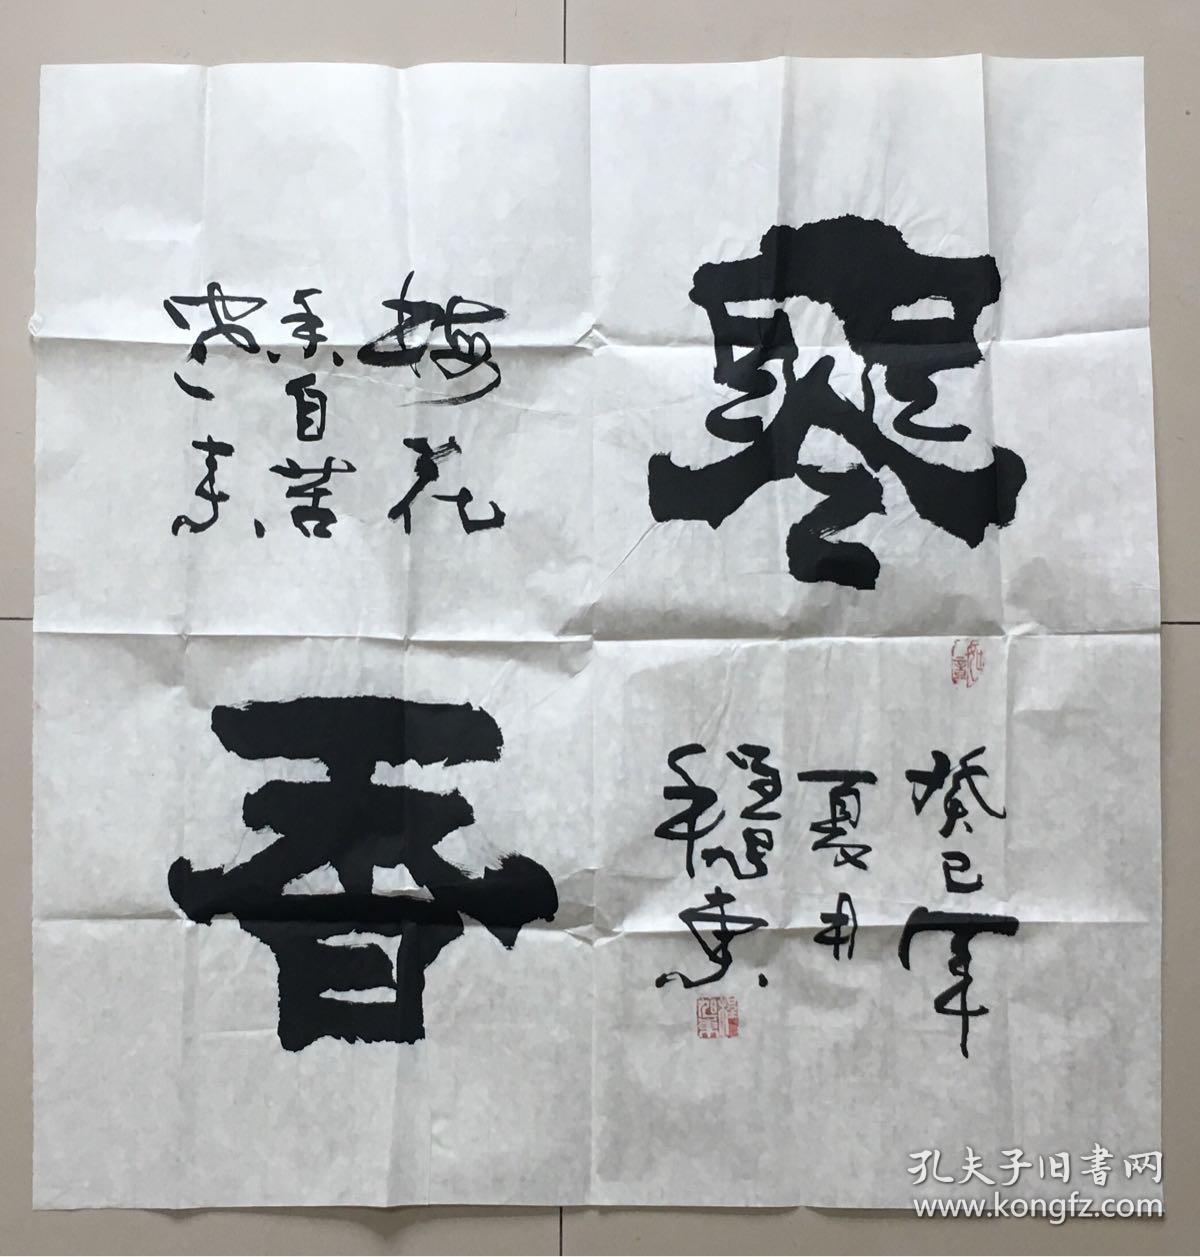 寒
香
梅花
香自苦
寒来
癸巳年
夏月
孔夫子旧書网
www.kongfz.com